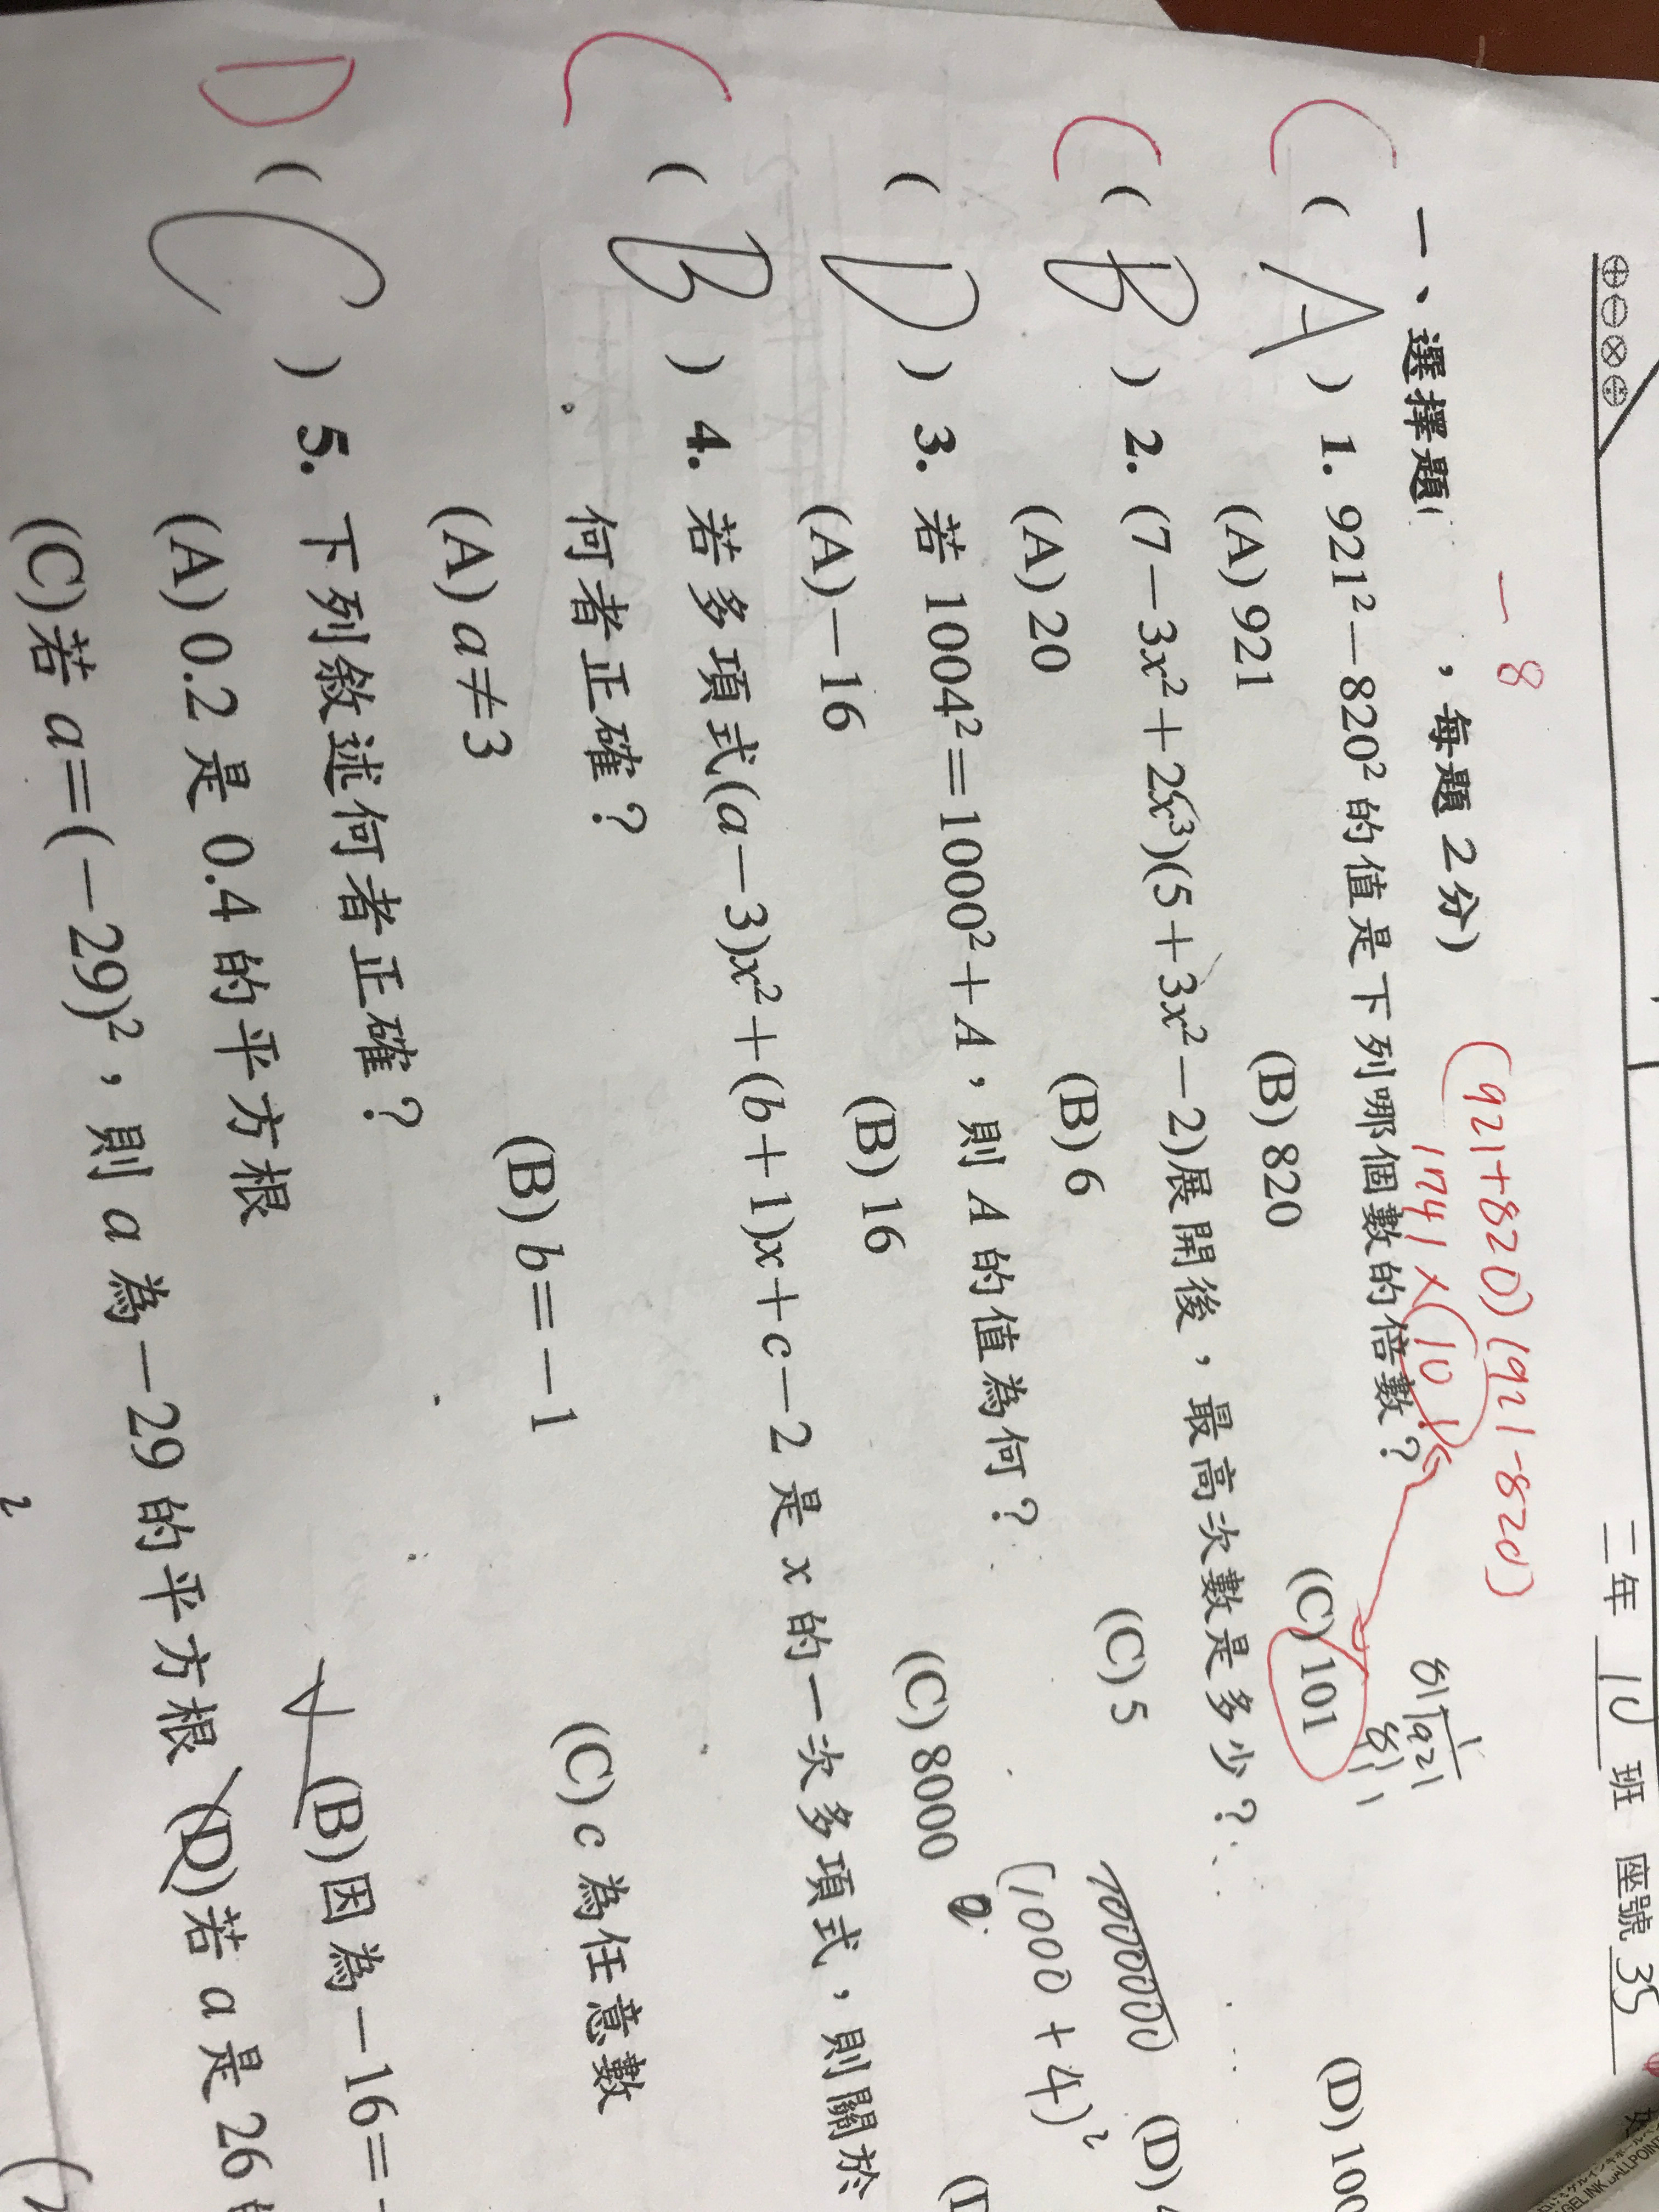 二年 10 班 座號 35
－8
(921+820)(921-820)
1741×101
一、選擇題 ，每題2分)
C ( A ) 1. 921²－820² 的值是下列哪個數的倍數？
(A) 921 (B) 820 (C) 101 (D) 100
C ( B ) 2. (7－3x²＋2x³)(5＋3x²－2)展開後，最高次數是多少？
(A) 20 (B) 6 (C) 5 (D)
( D ) 3. 若 1004²＝1000²＋A，則 A 的值為何？
(1000+4)²
(A)－16 (B) 16 (C) 8000
C ( B ) 4. 若多項式(a－3)x²＋(b＋1)x＋c－2 是 x 的一次多項式，則關於
何者正確？
(A) a≠3 (B) b＝－1 (C) c 為任意數
D ( C ) 5. 下列敘述何者正確？
(A) 0.2 是 0.4 的平方根 (B)因為－16＝
(C)若 a＝(－29)²，則 a 為－29 的平方根 (D)若 a 是 26